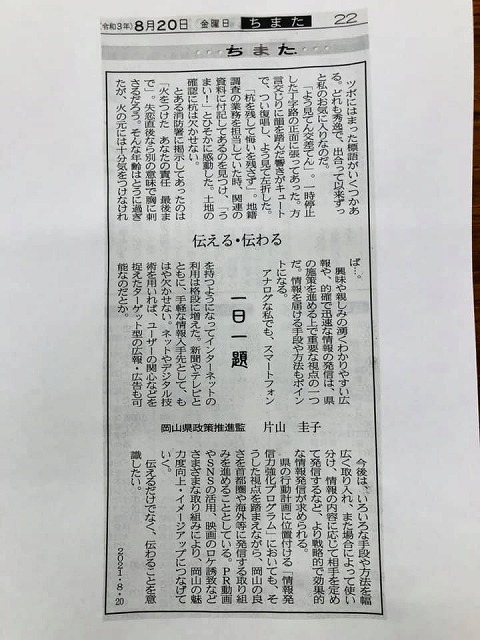 (令和3年) 8月20日 金曜日 ちまた 22
ちまた
ツボにはまった標語がいくつかあ
る。どれも秀逸で、出合って以来ずっ
と私のお気に入りなのだ。
「よう見てん交差てん」。一時停止
した丁字路の正面に張ってあった。方
言交じりに韻を踏んだ響きがキュート
で、つい復唱し、よう見て左折した。
「杭を残して悔いを残さず」。地籍
調査の業務を担当していた時、関連の
資料に付記してあるのを見つけ、「う
まい！」とひそかに感動した。土地の
確認に杭は欠かせない。
とある消防署に掲示してあったのは
「火をつけた あなたの責任 最後ま
で」。失恋直後なら別の意味で胸に刺
さるだろう。そんな年齢はとうに過ぎ
たが、火の元には十分気をつけなけれ
伝える・伝わる
ば…。
興味や親しみの湧くわかりやすい広
報や、的確で迅速な情報の発信は、県
の施策を進める上で重要な視点の一つ
だ。情報を届ける手段や方法もポイン
トになる。
アナログな私でも、スマートフォン
一日一題
を持つようになってインターネットの
利用は格段に増えた。新聞やテレビと
ともに、手軽な情報入手先として、も
はや欠かせない。ネットやデジタル技
術を用いれば、ユーザーの関心などを
捉えたターゲット型の広報・広告も可
能なのだとか。
岡山県政策推進監 片山 圭子
今後は、いろいろな手段や方法を幅
広く取り入れ、また場合によって使い
分け、情報の内容に応じて相手を定め
て発信するなど、より戦略的で効果的
な情報発信が求められる。
県の行動計画に位置付ける「情報発
信力強化プログラム」においても、そ
うした視点を踏まえながら、岡山の良
さを首都圏や海外等に発信する取り組
みを進めることとしている。PR動画
やSNSの活用、映画のロケ誘致など
さまざまな取り組みにより、岡山の魅
力度向上・イメージアップにつなげて
いく。
伝えるだけでなく、伝わることを意
識したい。
2021・8・20